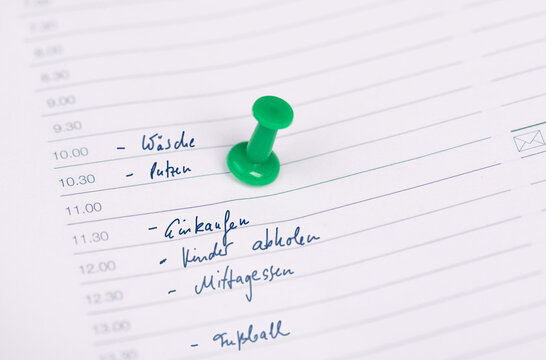 8.30
9.00
9.30
10.00 - Wäsche
10.30 - Putzen
11.00
- Einkaufen
11.30 - Kinder abholen
12.00 - Mittagessen
12.30
13.00 - Fußball